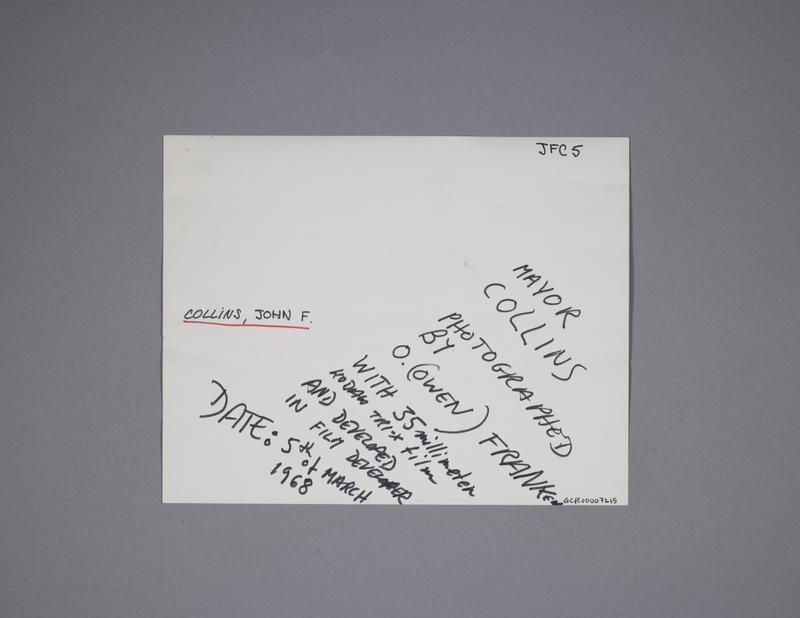 JFC 5
COLLINS, JOHN F.
MAYOR
COLLINS
PHOTOGRAPHED
BY
O. (OWEN) FRANKEN
WITH 35 millimeter
KODAK TRI-X film
AND DEVELOPED
IN FILM DEVELOPER
DATE: 5th
of MARCH
1968
GCP.00007215